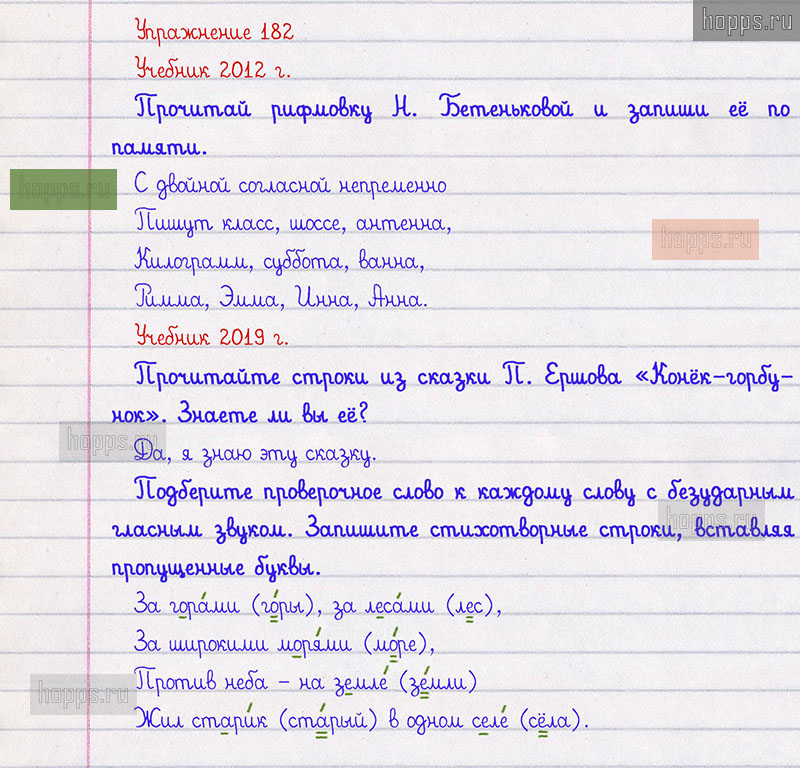 hopps.ru
Упражнение 182
Учебник 2012 г.
Прочитай рифмовку Н. Бетеньковой и запиши её по
памяти.
hopps.ru
С двойной согласной непременно
Пишут класс, шоссе, антенна,
hopps.ru
Килограмм, суббота, ванна,
Римма, Эмма, Инна, Анна.
Учебник 2019 г.
Прочитайте строки из сказки П. Ершова «Конёк-горбу-
нок». Знаете ли вы её?
hopps.ru
Да, я знаю эту сказку.
Подберите проверочное слово к каждому слову с безударным
hopps.ru
гласным звуком. Запишите стихотворные строки, вставляя
пропущенные буквы.
За гора́ми (го́ры), за леса́ми (лес),
За широкими моря́ми (мо́ре),
hopps.ru
Против неба – на земле́ (зе́мли)
Жил стари́к (ста́рый) в одном селе́ (сёла).